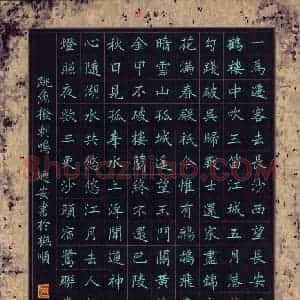 一為遷客去長沙西望長安
鶴樓中吹玉笛江城五月落
勾踐破吳歸戰士還家盡錦
花滿春殿祇今惟有鷓鴣飛
暗雪山孤城遙望玉門關黃
金甲不破樓蘭終不還巴陵
秋日見孤峰水上浮聞道神
心隨湖水共悠悠江月去人
燈照夜欲三更沙頭宿鷺聯
跳魚撥剌鳴 安書於撫順
Shufaziliao.com